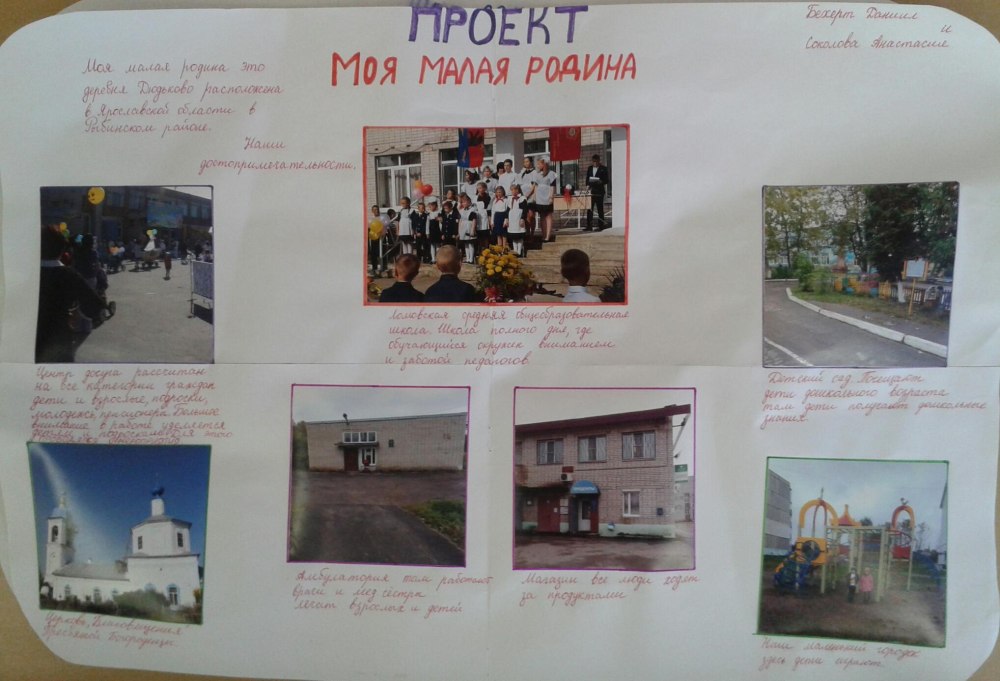 ПРОЕКТ
МОЯ МАЛАЯ РОДИНА
Бехерт Даниил
и
Соколова Анастасия
Моя малая родина это
деревня Дюдьково расположена
в Ярославской области в
Рыбинском районе.
Наши
достопримечательности.
Ломовская средняя общеобразовательная
школа. Школа полного дня, где
обучающийся окружен вниманием
и заботой педагогов.
Центр досуга рассчитан
на все категории граждан
дети и взрослые, подростки,
молодежь, пенсионера. Большое
внимание в работе уделяется
детям и подросткам для этого
Детский сад. Посещают
дети дошкольного возраста
там дети получают дошкольных
знаний.
Церковь, Благовещения
Пресвятой Богородицы.
Амбулатория там работают
врачи и мед сестра
лечат взрослых и детей
Магазин все люди ходят
за продуктами
Наш маленький городок
здесь дети играют.